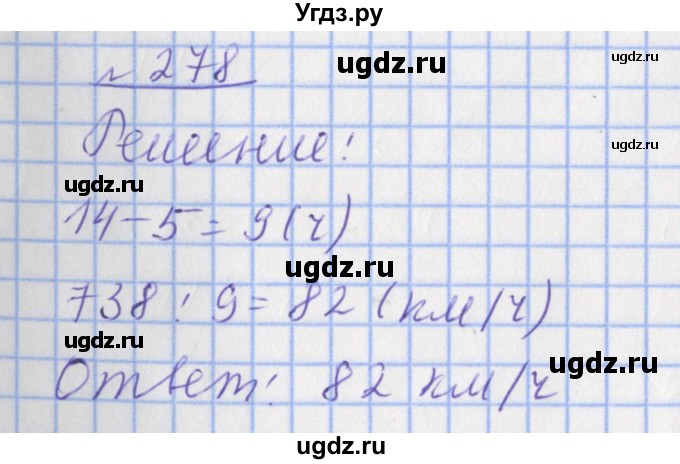 Угдз.ру
№ 278
ugdz.ru
ugdz.ru
Решение:
ugdz.ru
14-5=9(ч)
ugdz.ru
ugdz.ru
738:9=82(км/ч)
ugdz.ru
ugdz.ru
Ответ: 82 км/ч
ugdz.ru